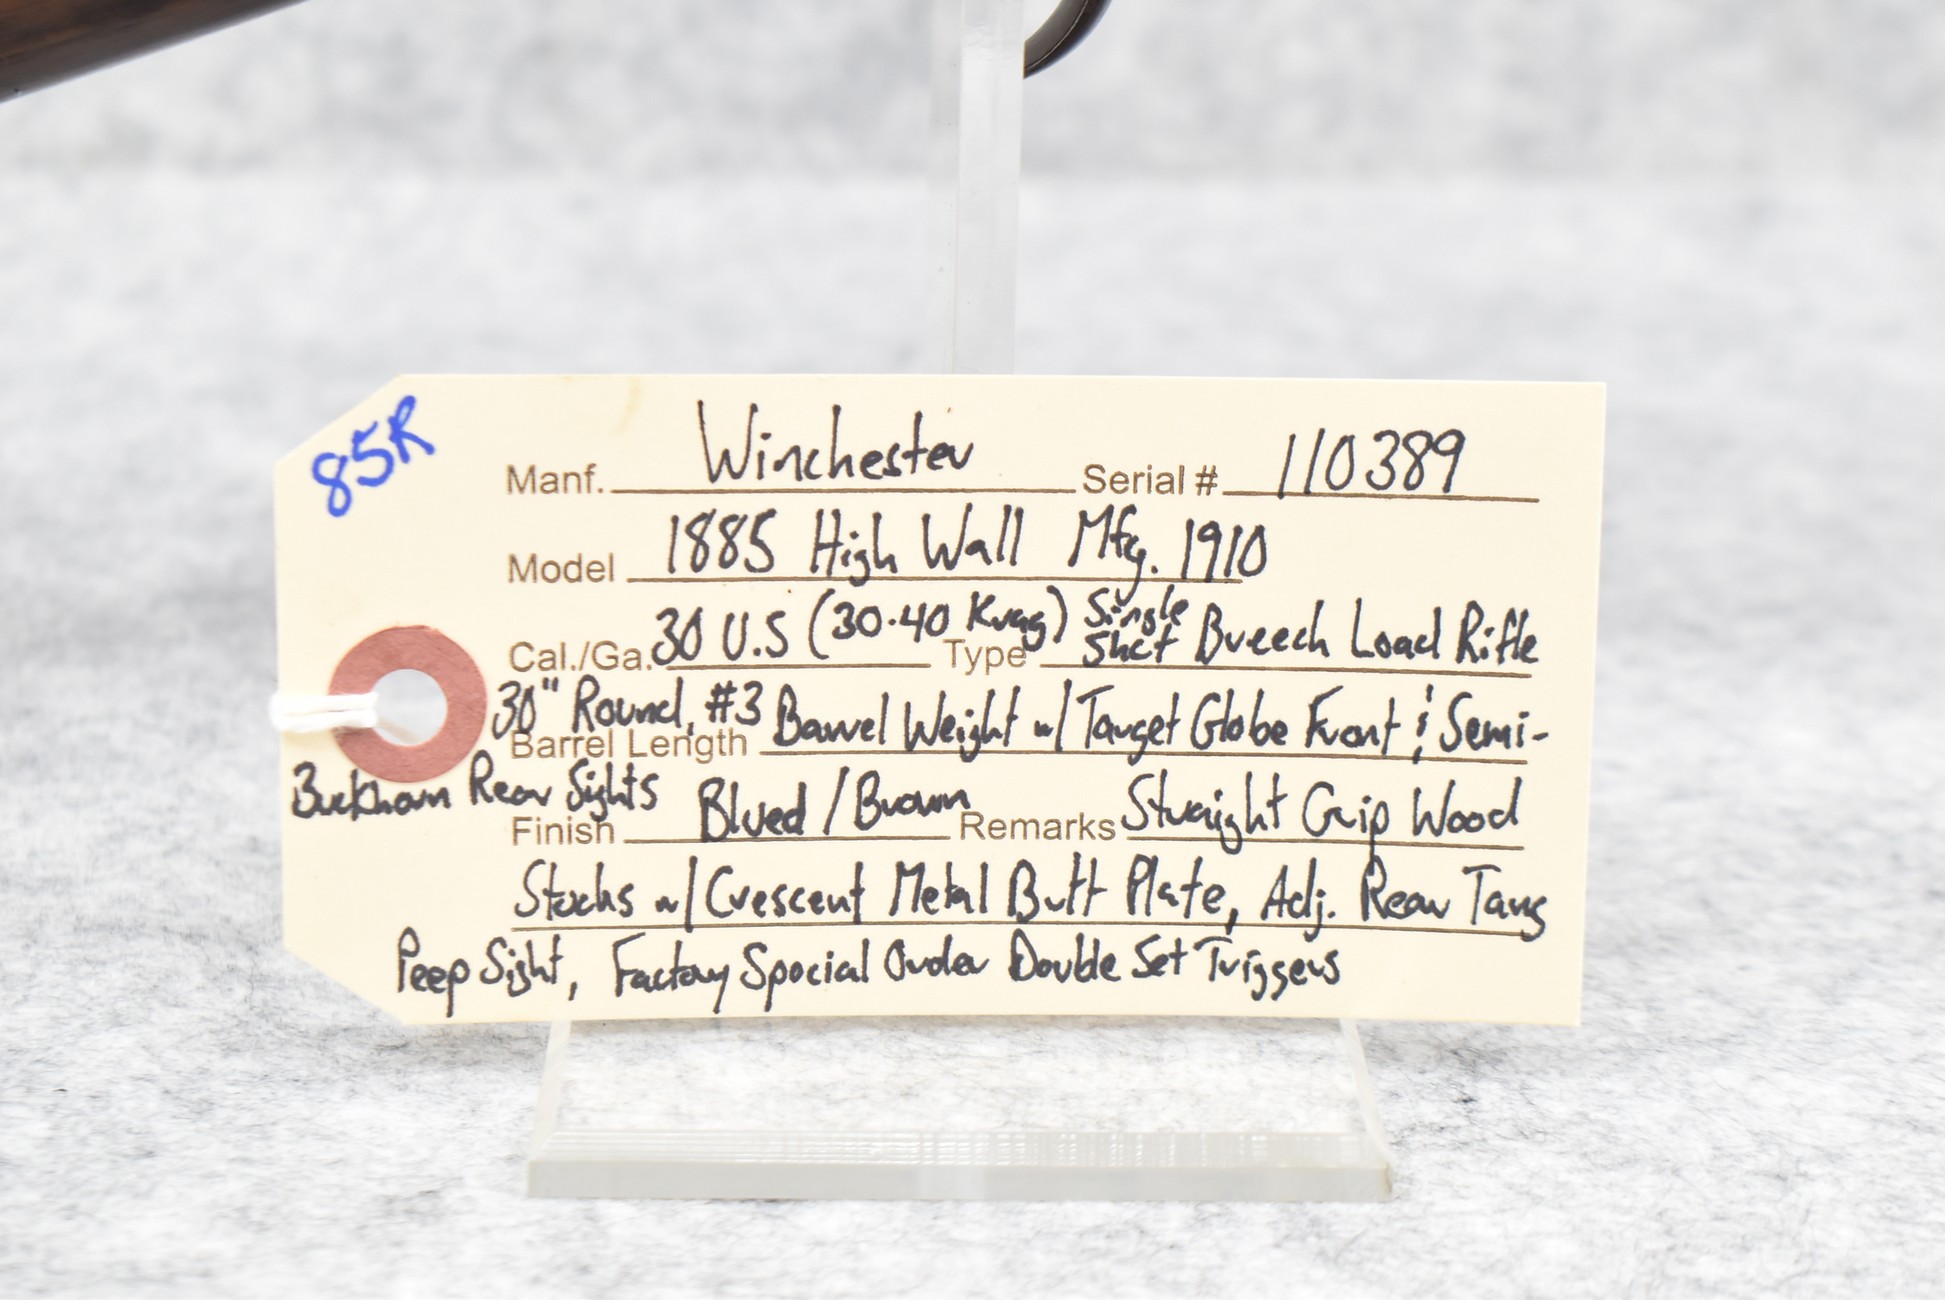 85R
Manf. Winchester Serial # 110389
Model 1885 High Wall Mfg. 1910
Cal./Ga. 30 U.S (30-40 Krag) Type Single Shot Breech Load Rifle
30" Round, #3 Barrel Length Barrel Weight w/ Target Globe Front & Semi-
Buckhorn Rear Sights
Finish Blued / Brown Remarks Straight Grip Wood
Stocks w/ Crescent Metal Butt Plate, Adj. Rear Tang
Peep Sight, Factory Special Order Double Set Triggers